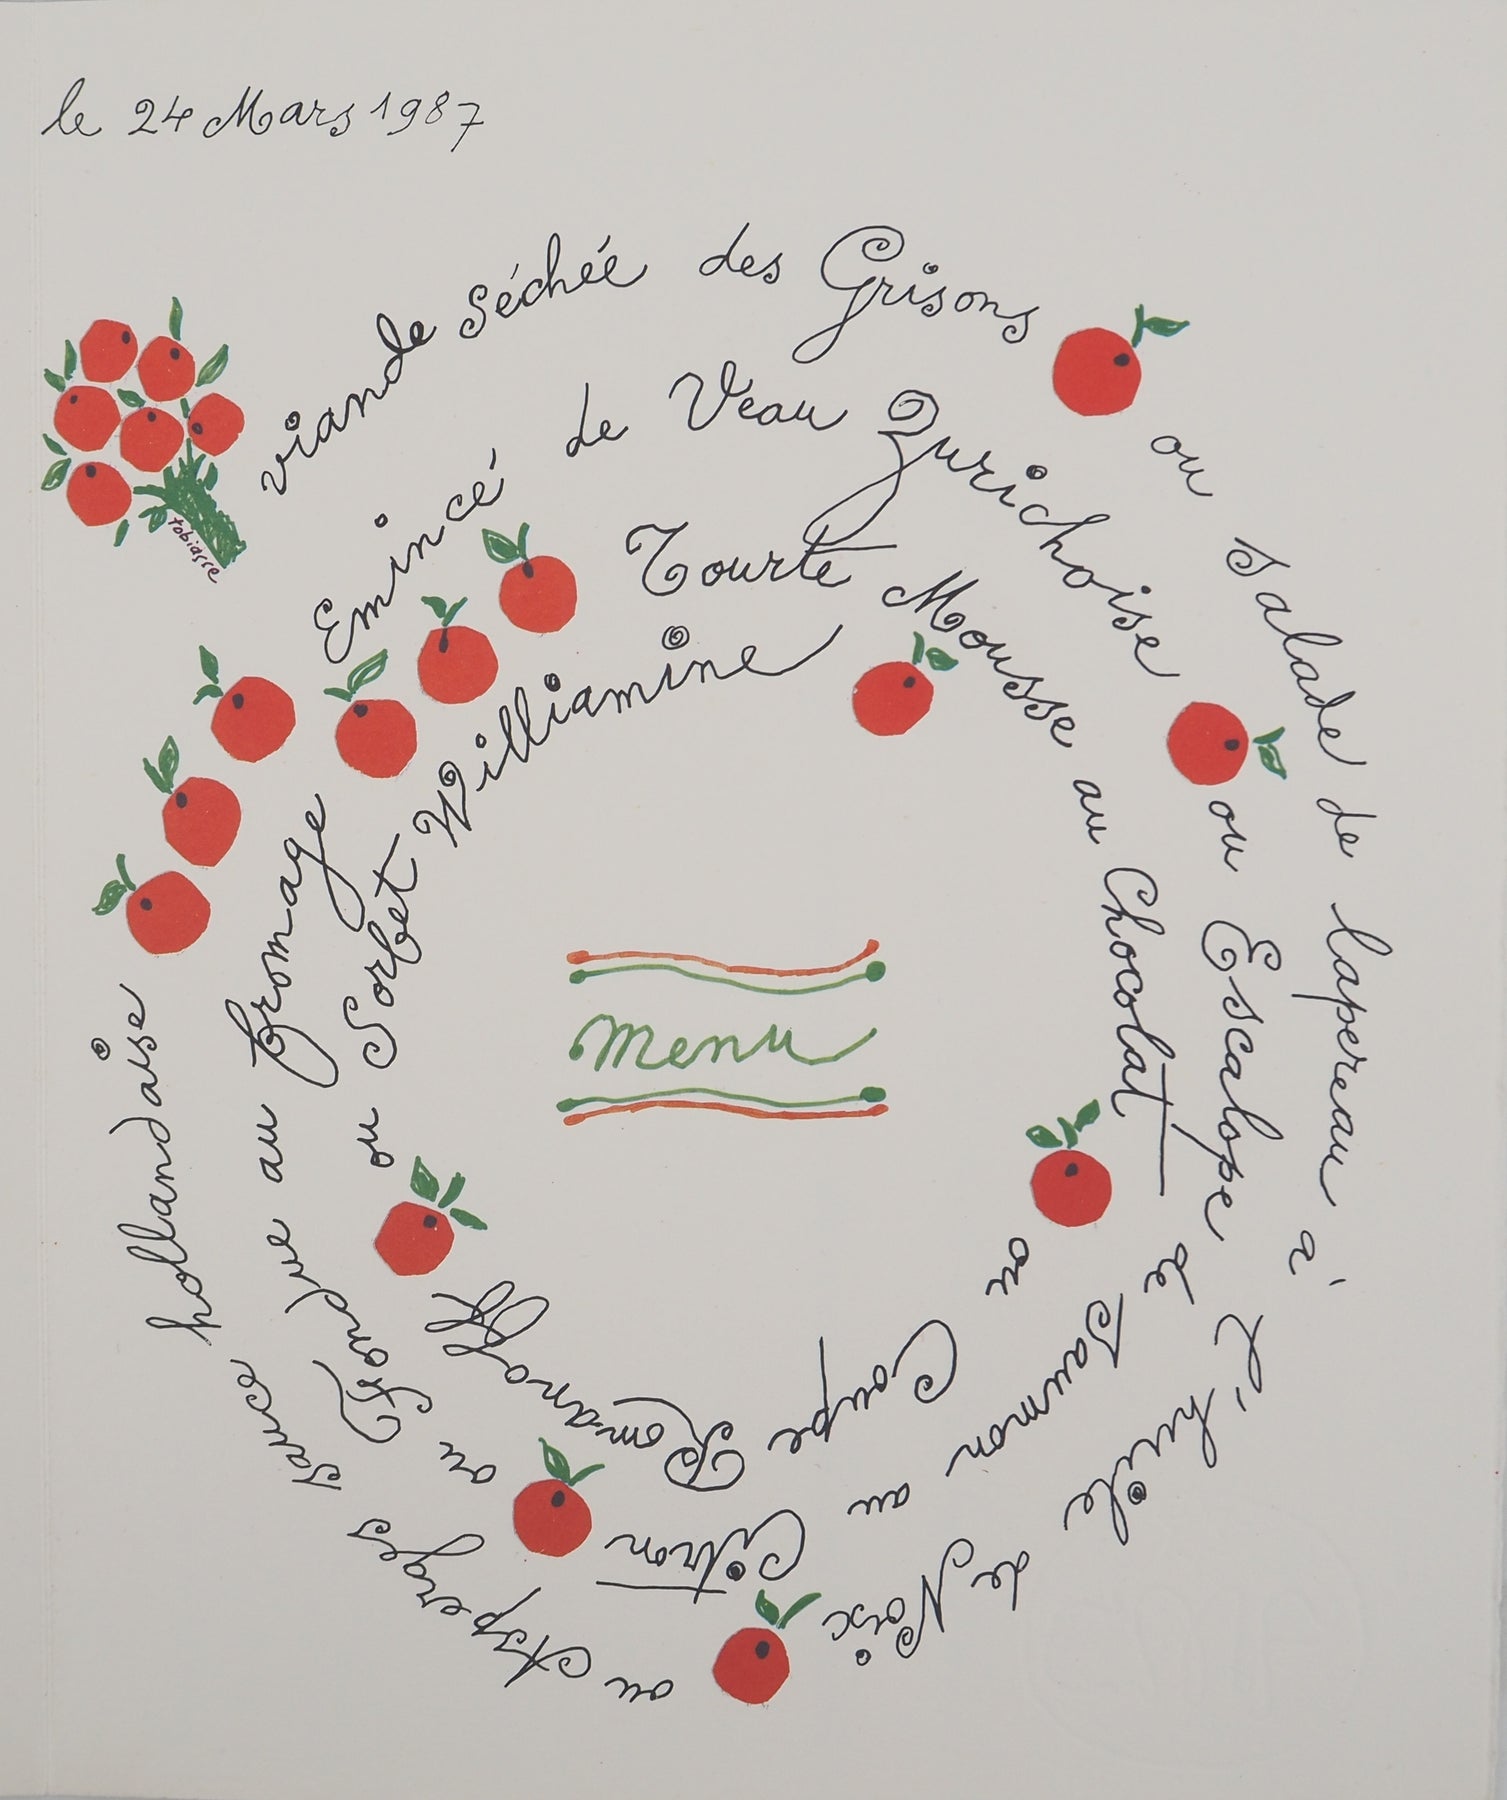 le 24 Mars 1987
viande séchée des Grisons ou salade de lapereau à l'huile de Noix ou Asperges sauce hollandaise
Emincé de Veau Zurichoise ou Escalope de Saumon au Citron ou Fondue au fromage
Tourte Mousse au Chocolat ou Coupe Romanoff ou Sorbet Williamine
menu
tobiasse